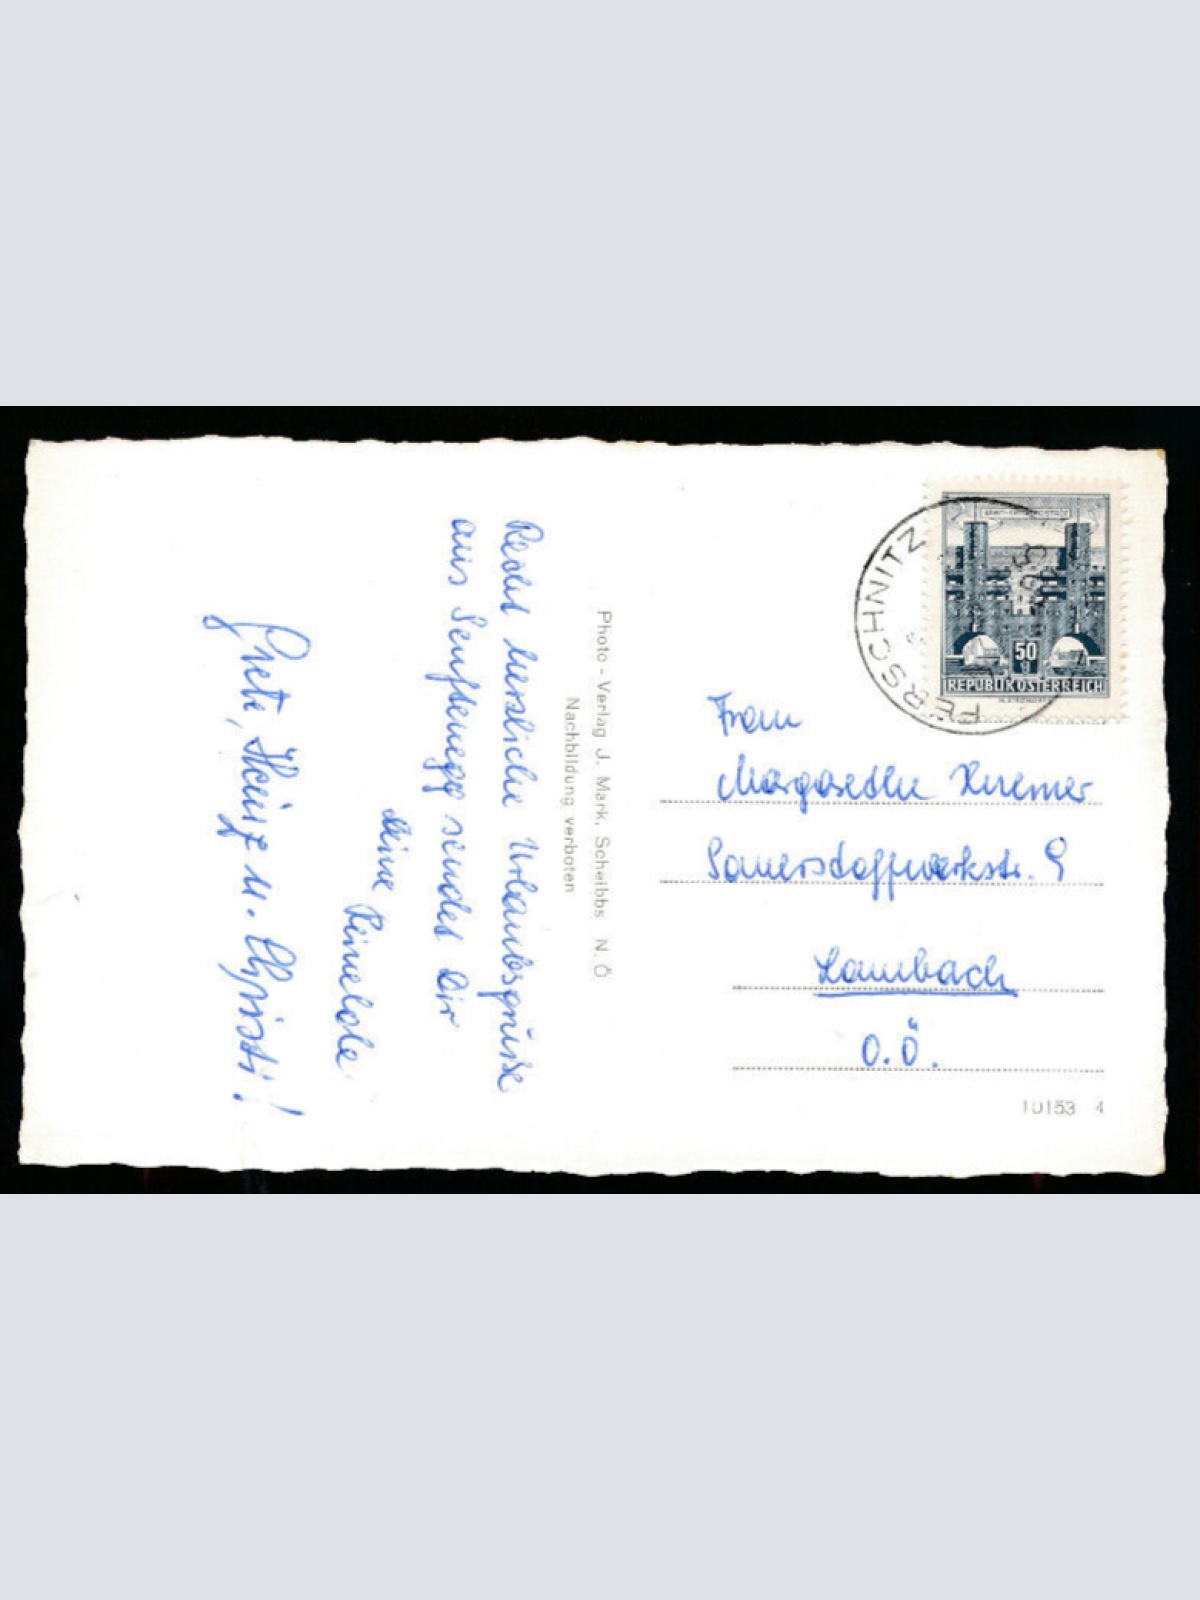 Recht herzliche Urlaubsgrüße
aus Senftenegg sendet Dir
Deine
Grete, Heinz u. Christi!
Photo-Verlag J. Mark, Scheibbs N. Ö
Nachbildung verboten
FERSCHNITZ
50
REPUBLIK ÖSTERREICH
Frau
Margarethe
Sauerstoffwerkstr. 9
Lambach
O.Ö.
10153 4